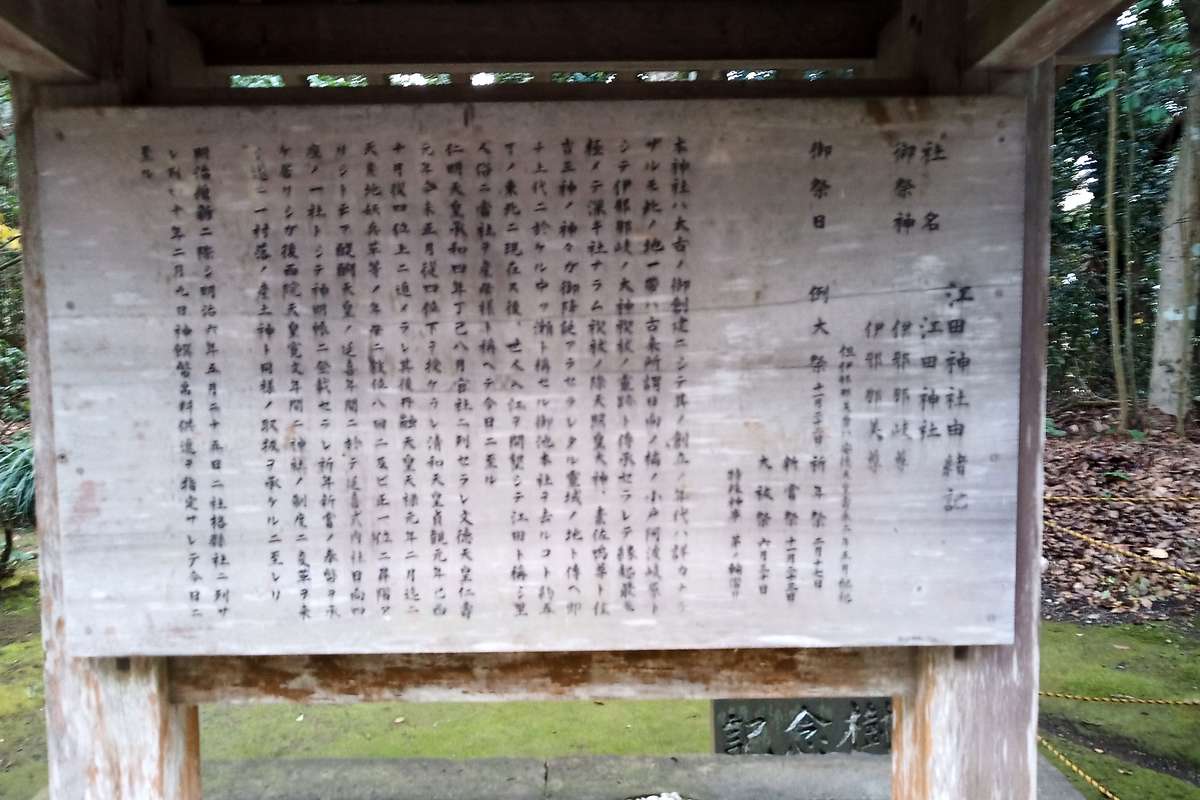 江田神社由緒記
社名 江田神社
御祭神 伊邪那岐尊
伊邪那美尊
御祭日 例大祭 祈年祭 二月十七日
新嘗祭 十一月二十三日
大祓祭 六月三十日
特殊神事 茅ノ輪潜リ
本神社ハ太古ノ御創建ニシテ其ノ創立ノ年代ハ詳カナラ
ザルモ此ノ地一帯ハ古来所謂日向ノ橘ノ小戸阿波岐原ト
シテ伊邪那岐ノ大神禊祓ノ霊跡ト伝承セラレテ縁起最モ
極メテ深キ社ナラム禊祓ノ際天照皇大神、素佐鳴尊ト住
吉三神ノ神々ガ御降誕アラセラレタル霊域ノ地ト傳ヘ即
チ上代ニ於ケル中ツ瀬ト稱セル御池本社ヲ去ルコト約五
丁ノ東北ニ現在ス後、世人入江ヲ開墾シテ江田ト稱シ里
人俗ニ當社ヲ産母様ト稱ヘテ今日ニ至ル
仁明天皇承和四年丁巳八月官社ニ列セラレ文徳天皇仁壽
元年辛未正月従四位下ヲ授ケラレ清和天皇貞観元年己卯
十月従四位上ニ進メラレ其後円融天皇天禄元年二月迄ニ
天変地妖兵革等ノ年毎ニ戦位八回ニ及ビ正一位ニ昇階ア
リシトモフ醍醐天皇ノ延喜年間ニ於テ延喜式内社日向四
座ノ一社トシテ神明帳ニ登載セラレ祈年新嘗ノ奉幣ヲ承
ケ居リシガ後西院天皇寛文年間ニ神社ノ制度ニ変革ヲ来
シ遂ニ一村落ノ産土神ト同様ノ取扱ヲ承ケルニ至レリ
明治維新ニ際シ明治六年五月二十五日ニ社格縣社ニ列サ
レ列四十年二月九日神饌幣帛料供進ヲ指定サレテ今日ニ
至ル
樹念記